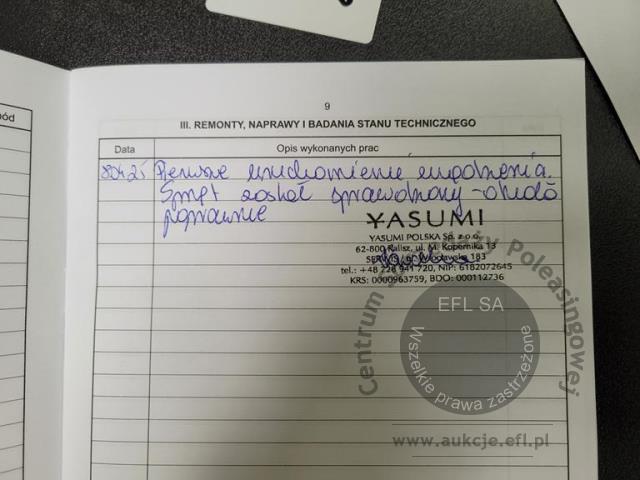 ód
9
III. REMONTY, NAPRAWY I BADANIA STANU TECHNICZNEGO
Data
Opis wykonanych prac
Pierwsze uruchomienie urządzenia.
Sprzęt został sprawdzony - działa
poprawnie
YASUMI
YASUMI POLSKA Sp. z o.o.
62-800 Kalisz, ul. M. Kopernika 13
SERWIS: Wrocławska 183
tel.: +48 728 941 720, NIP: 6182072645
KRS: 0000963759, BDO: 000112736
Centrum Poleasingowej
EFL SA
Wszelkie prawa zastrzeżone
www.aukcje.efl.pl